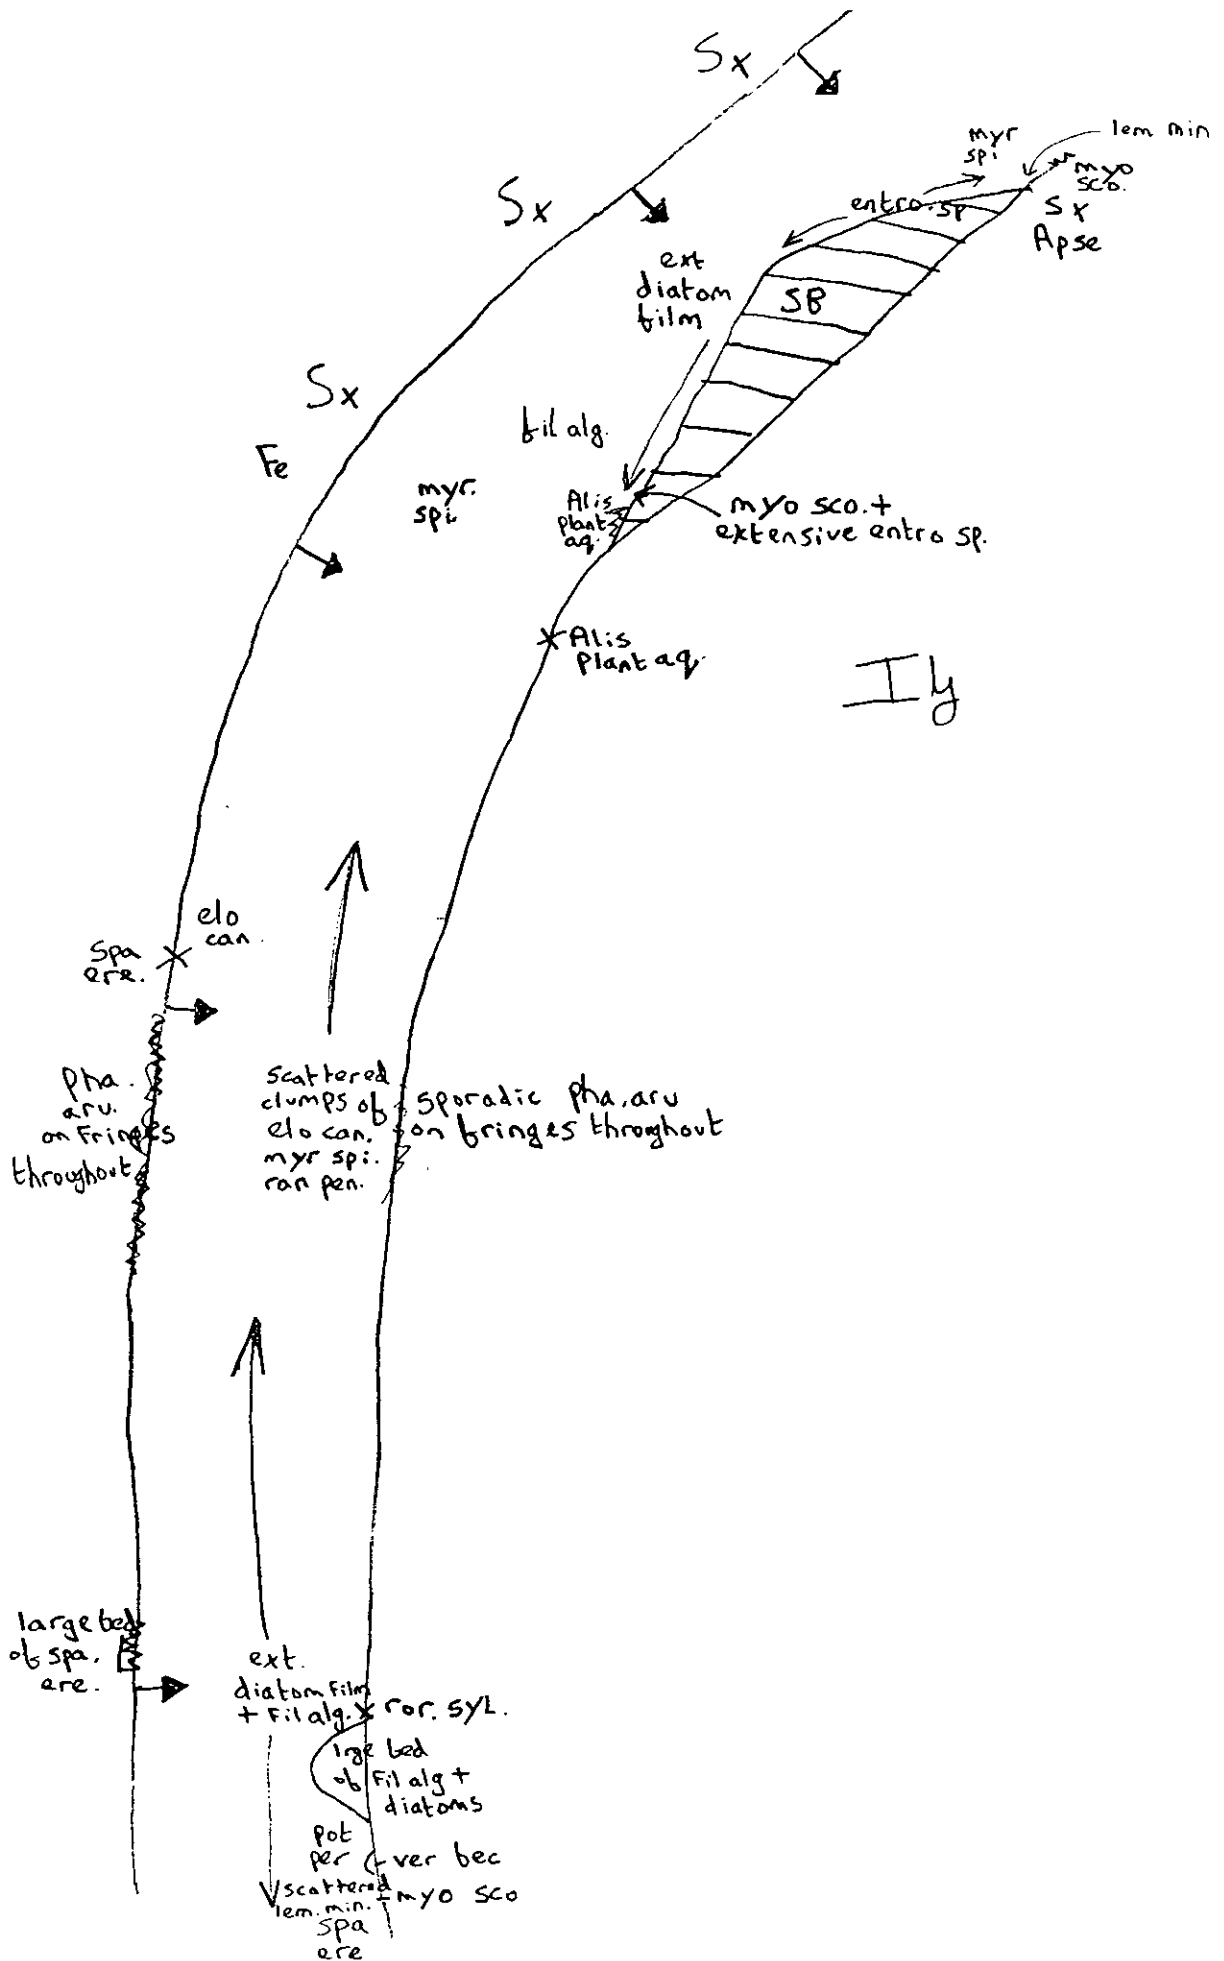 Sx
lem min
myr
spi
myo
sco.
Sx
entro. sp
Sx
Apse
ext
diatom
film
SB
Sx
fil alg.
Fe
myr.
spi
Alis
plant
aq.
myo sco. +
extensive entro sp.
Alis
plant aq.
elo
can.
Spa
ere.
pha.
aru.
on Fringes
throughout
scattered
clumps of
elo can.
myr spi.
ran pen.
sporadic pha. aru
on fringes throghout
large bed
of spa.
ere.
ext.
diatom film
+ Fil alg.
ror. syl.
lrge bed
of Fil alg +
diatoms
pot
per
ver bec
scattered
lem. min.
myo sco
spa
ere